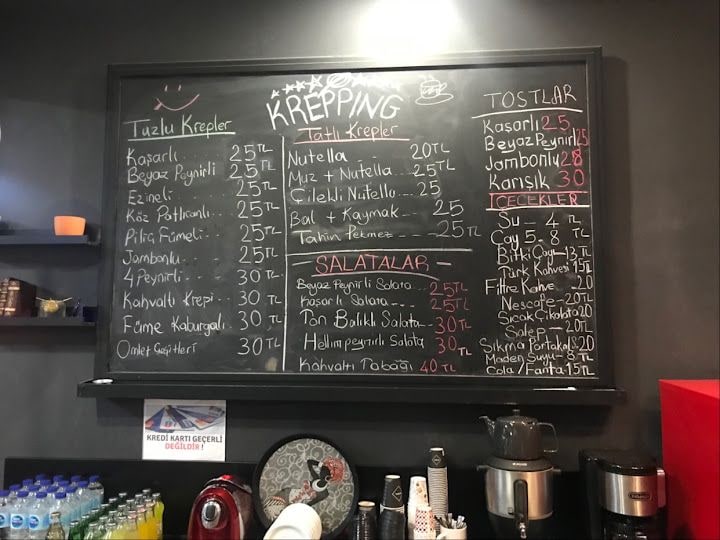 KREPPING
Tuzlu Krepler
Kaşarlı.. 25 TL
Beyaz Peynirli 25 TL
Ezineli - 25 TL
Köz Patlıcanlı.. 25 TL
Piliç Fümeli.. 25 TL
Jambonlu... 25 TL
4 Peynirli 30 TL
Kahvaltı Krepi.. 30 TL
Füme Kaburgalı 30 TL
Omlet Çeşitleri 30 TL
Tatlı Krepler
Nutella .. 20 TL
Muz + Nutella.... 25 TL
Çilekli Nutella... 25
Bal + Kaymak.. 25
Tahin Pekmez---- 25 TL
SALATALAR -
Beyaz Peynirli Salata 25 TL
Kaşarlı Salata --- 25 TL
Ton Balıklı Salata-- 30 TL
Hellim peynirli Salata 30 TL
Kahvaltı Tabağı 40 TL
TOSTLAR
Kaşarlı 25
Beyaz Peynirli 25
Jambonlu 28
Karışık 30
İÇECEKLER
Su - 4 TL
Çay 5-8 TL
Bitki Çayı-13 TL
Türk Kahvesi 15 TL
Filtre Kahve-20
Nescafe-20 TL
Sıcak Çikolata 20
Salep-20 TL
Sıkma Portakal 20
Maden Suyu-8 TL
Cola/Fanta-15 TL
KREDİ KARTI GEÇERLİ
DEĞİLDİR !